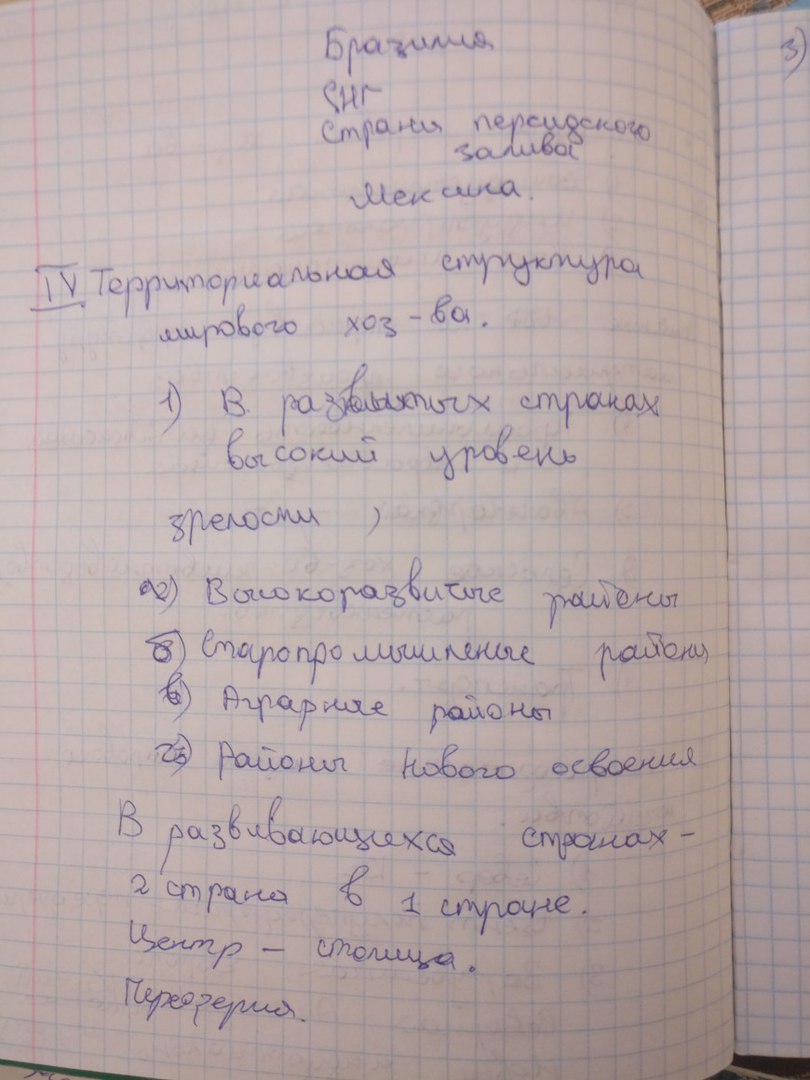 Бразилия
СНГ
Страны персидского
залива
Мексика.
3)
IV Территориальная структура
мирового хоз-ва.
1) В развитых странах
высокий уровень
зрелости,
а) Высокоразвитые районы
б) Старопромышленые районы
в) Аграрные районы
г) Районы нового освоения
В развивающихся странах -
2 страна в 1 стране.
Центр - столица.